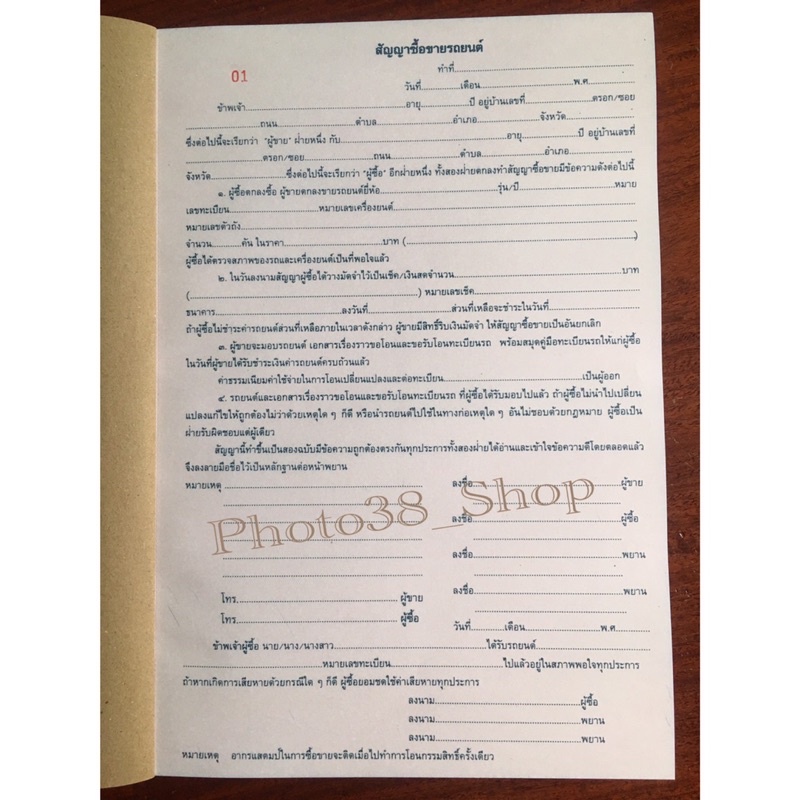 สัญญาซื้อขายรถยนต์
01
ทำที่
วันที่ เดือน พ.ศ.
ข้าพเจ้า อายุ ปี อยู่บ้านเลขที่ ตรอก/ซอย
ถนน ตำบล อำเภอ จังหวัด
ซึ่งต่อไปนี้จะเรียกว่า "ผู้ขาย" ฝ่ายหนึ่ง กับ อายุ ปี อยู่บ้านเลขที่
ตรอก/ซอย ถนน ตำบล อำเภอ
จังหวัด ซึ่งต่อไปนี้จะเรียกว่า "ผู้ซื้อ" อีกฝ่ายหนึ่ง ทั้งสองฝ่ายตกลงทำสัญญาซื้อขายมีข้อความดังต่อไปนี้
๑. ผู้ซื้อตกลงซื้อ ผู้ขายตกลงขายรถยนต์ยี่ห้อ รุ่น/ปี หมาย
เลขทะเบียน หมายเลขเครื่องยนต์
หมายเลขตัวถัง
จำนวน คัน ในราคา บาท ( )
ผู้ซื้อได้ตรวจสภาพของรถและเครื่องยนต์เป็นที่พอใจแล้ว
๒. ในวันลงนามสัญญาผู้ซื้อได้วางมัดจำไว้เป็นเช็ค/เงินสดจำนวน บาท
( ) หมายเลขเช็ค
ธนาคาร ลงวันที่ ส่วนที่เหลือจะชำระในวันที่
ถ้าผู้ซื้อไม่ชำระค่ารถยนต์ส่วนที่เหลือภายในเวลาดังกล่าว ผู้ขายมีสิทธิ์ริบเงินมัดจำ ให้สัญญาซื้อขายเป็นอันยกเลิก
๓. ผู้ขายจะมอบรถยนต์ เอกสารเรื่องราวขอโอนและขอรับโอนทะเบียนรถ พร้อมสมุดคู่มือทะเบียนรถให้แก่ผู้ซื้อ
ในวันที่ผู้ขายได้รับชำระเงินค่ารถยนต์ครบถ้วนแล้ว
ค่าธรรมเนียมค่าใช้จ่ายในการโอนเปลี่ยนแปลงและต่อทะเบียน เป็นผู้ออก
๔. รถยนต์และเอกสารเรื่องราวขอโอนและขอรับโอนทะเบียนรถ ที่ผู้ซื้อได้รับมอบไปแล้ว ถ้าผู้ซื้อไม่นำไปเปลี่ยน
แปลงแก้ไขให้ถูกต้องไม่ว่าด้วยเหตุใด ๆ ก็ดี หรือนำรถยนต์ไปใช้ในทางก่อเหตุใด ๆ อันไม่ชอบด้วยกฎหมาย ผู้ซื้อเป็น
ฝ่ายรับผิดชอบแต่ผู้เดียว
สัญญานี้ทำขึ้นเป็นสองฉบับมีข้อความถูกต้องตรงกันทุกประการทั้งสองฝ่ายได้อ่านและเข้าใจข้อความดีโดยตลอดแล้ว
จึงลงลายมือชื่อไว้เป็นหลักฐานต่อหน้าพยาน
หมายเหตุ ลงชื่อ ผู้ขาย
Photo38_Shop
ลงชื่อ ผู้ซื้อ
ลงชื่อ พยาน
ลงชื่อ พยาน
โทร. ผู้ขาย
โทร. ผู้ซื้อ วันที่ เดือน พ.ศ.
ข้าพเจ้าผู้ซื้อ นาย/นาง/นางสาว ได้รับรถยนต์
หมายเลขทะเบียน ไปแล้วอยู่ในสภาพพอใจทุกประการ
ถ้าหากเกิดการเสียหายด้วยกรณีใด ๆ ก็ดี ผู้ซื้อยอมชดใช้ค่าเสียหายทุกประการ
ลงนาม ผู้ซื้อ
ลงนาม พยาน
ลงนาม พยาน
หมายเหตุ อากรแสตมป์ในการซื้อขายจะติดเมื่อไปทำการโอนกรรมสิทธิ์ครั้งเดียว